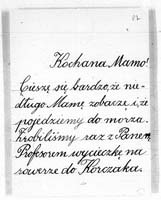 12
Kochana Mamo!
Cieszę się bardzo, że nie-
długo Mamę zobaczę i, że
pojedziemy do morza.
Zrobiliśmy raz z Panem
Profesorem wycieczkę na
rowerze do Korczaka.